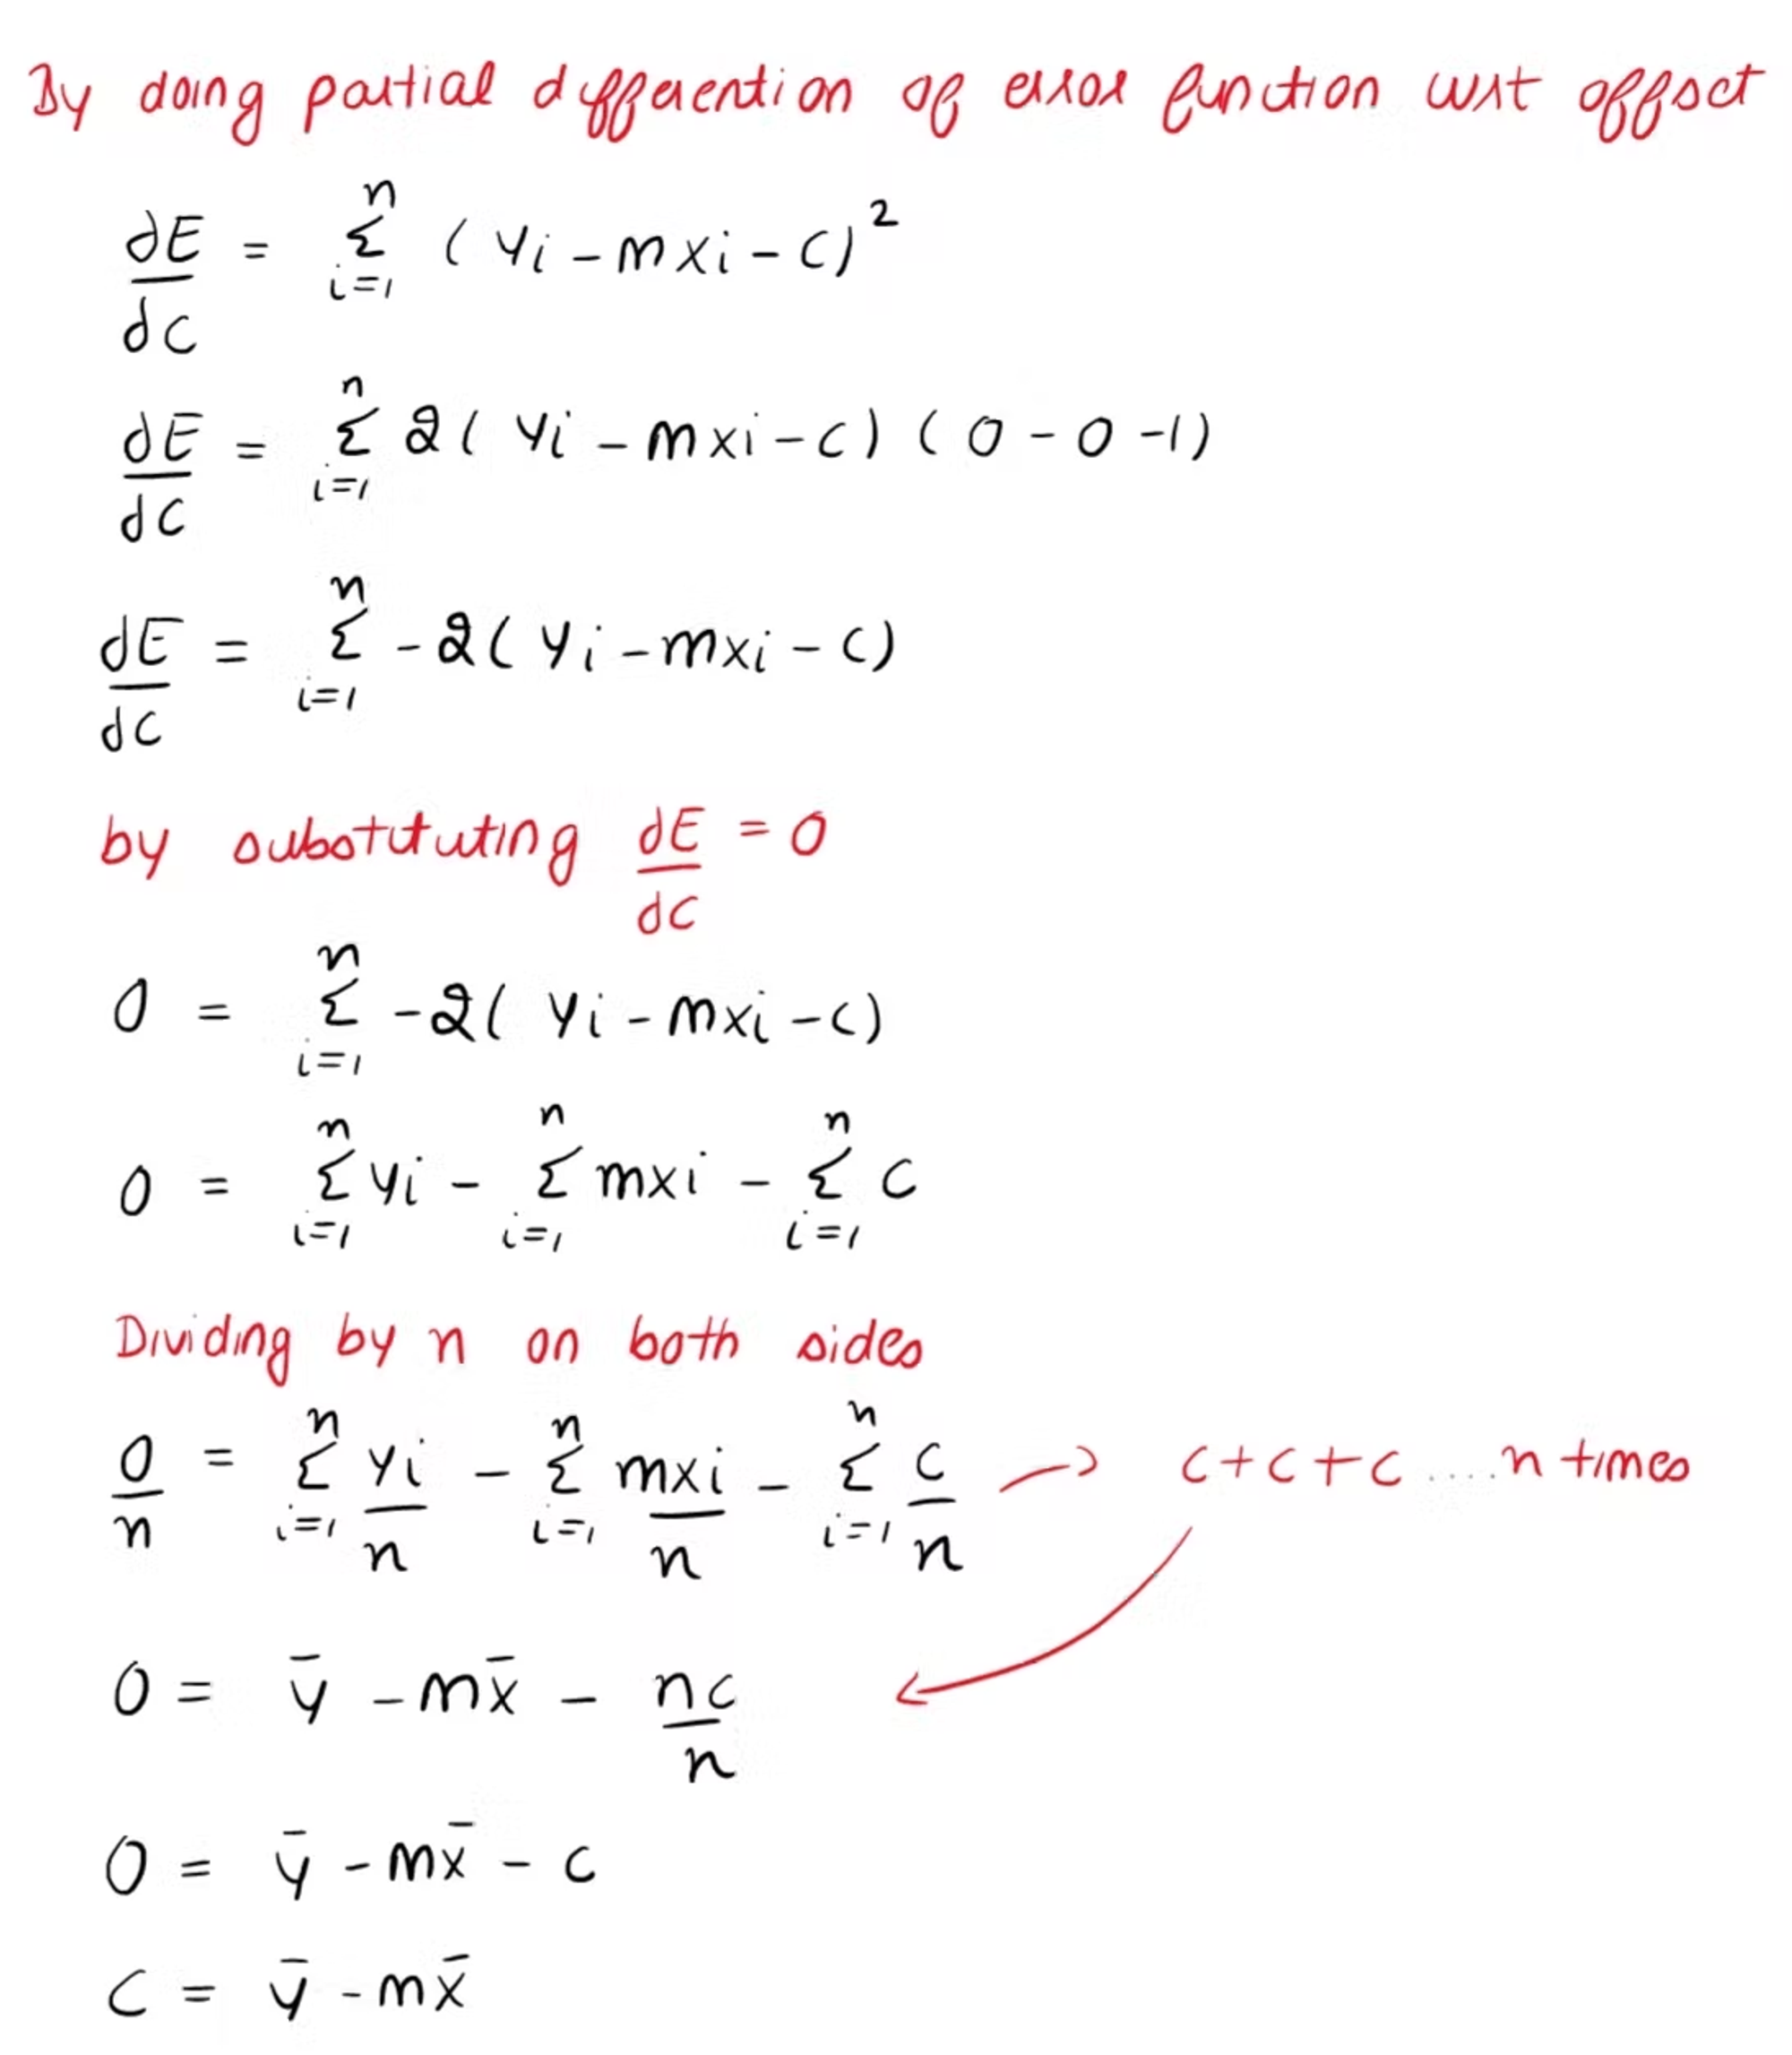 By doing partial differention of error function wrt offset
dE/dC = n Σ i=1 (yi - mxi - c)²
dE/dC = n Σ i=1 2(yi - mxi - c)(0 - 0 - 1)
dE/dC = n Σ i=1 -2(yi - mxi - c)
by substituting dE/dC = 0
0 = n Σ i=1 -2(yi - mxi - c)
0 = n Σ i=1 yi - n Σ i=1 mxi - n Σ i=1 c
Dividing by n on both sides
0/n = n Σ i=1 yi/n - n Σ i=1 mxi/n - n Σ i=1 c/n → c+c+c .....n times
0 = ȳ - mx̄ - nc/n
0 = ȳ - mx̄ - c
C = ȳ - mx̄